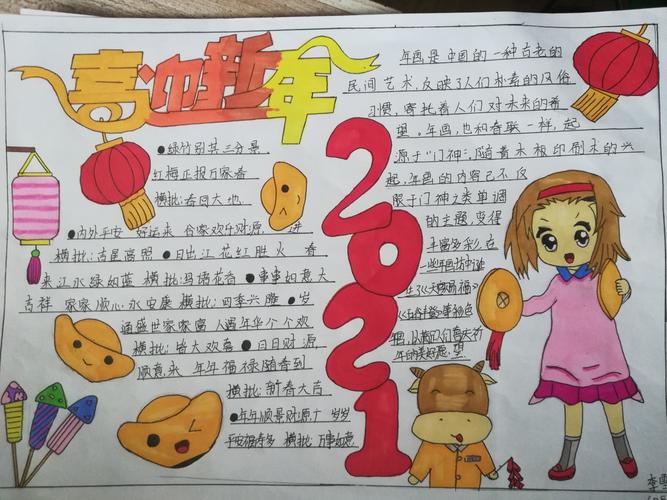 喜迎新年
●绿竹别其三分景
红梅正报万家春
横批:春回大地
●内外平安 好运来 合家欢乐财源 进
横批:吉星高照 ●日出江花红胜火 春
来江水绿如蓝 横批:鸟语花香 ●事事如意大
吉祥 家家顺心永安康 横批:四季兴隆 ●岁
通盛世家家富 人遇年华个个欢
横批:皆大欢喜 ●日日财源
顺意来 年年福禄随春到
横批:新春大吉
●年年顺景财源广 岁岁
平安福寿多 横批:万事如意
2021
年画是中国的一种古老的
民间艺术,反映了人们朴素的风俗
习惯,寄托着人们对未来的希
望。年画,也和春联一样,起
源于"门神",随着木板印刷术的兴
起,年画的内容已不仅
限于门神之类单调
的主题,变得
丰富多彩,在
一些年画坊中
年的美好愿望
李